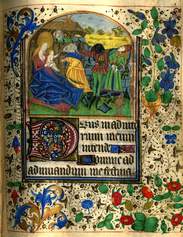 Deus in adiuto
rium meum
intende
Domine ad
adiuuandum me festina